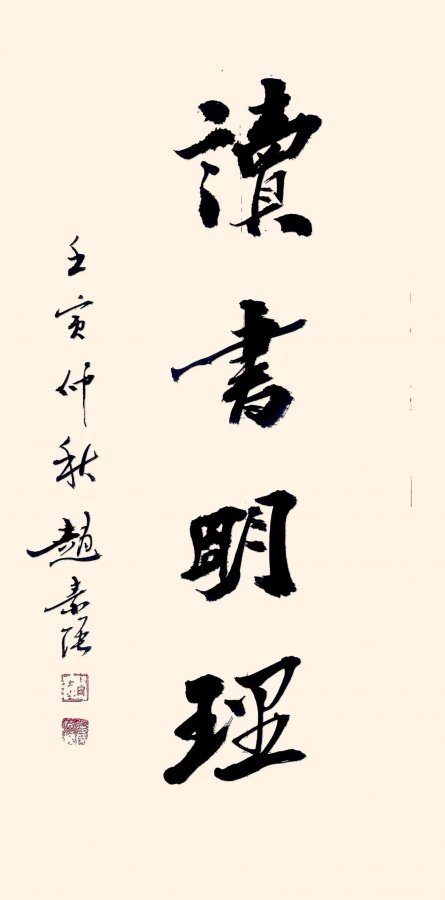 讀書明理
壬寅仲秋趙素